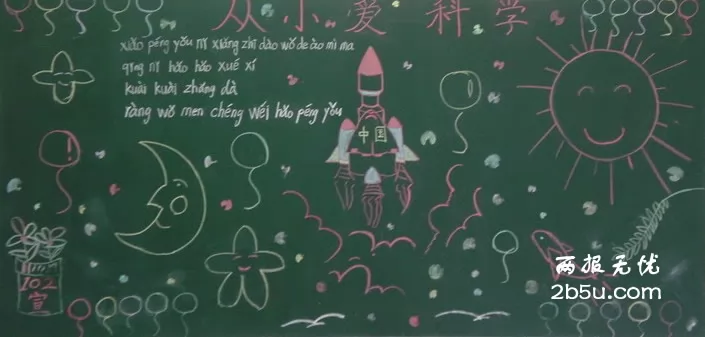 从小爱科学
xiǎo péng yǒu nǐ xiǎng zhī dào wǒ de ào mì ma
qǐng nǐ hǎo hǎo xué xí
kuài kuài zhǎng dà
ràng wǒ men chéng wéi hǎo péng yǒu
中国
!
102
宣
两报无忧
2b5u.com